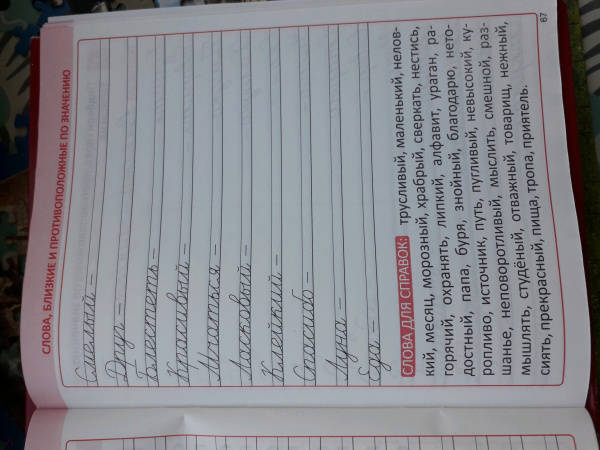 СЛОВА, БЛИЗКИЕ И ПРОТИВОПОЛОЖНЫЕ ПО ЗНАЧЕНИЮ
Смелый –
Друг –
Блестеть –
Красивый
Мчаться –
Ласковый –
Клейкий –
Спасибо –
Луна –
Еда –
СЛОВА ДЛЯ СПРАВОК: трусливый, маленький, нелов-
кий, месяц, морозный, храбрый, сверкать, нестись,
горячий, охранять, липкий, алфавит, ураган, ра-
достный, папа, буря, знойный, благодарю, нето-
ропливо, источник, путь, пугливый, невысокий, ку-
шанье, неповоротливый, мыслить, смешной, раз-
мышлять, студёный, отважный, товарищ, нежный,
сиять, прекрасный, пища, тропа, приятель.
67